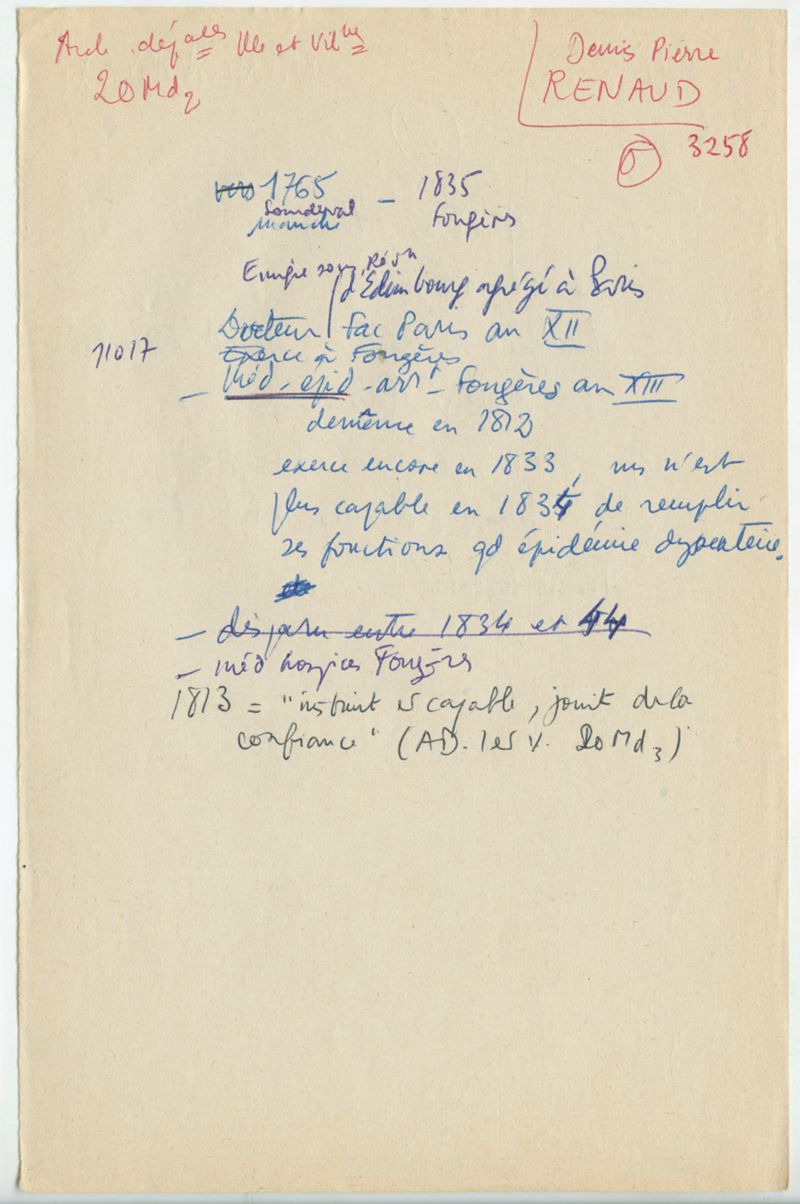 Arch. dép ales Ille et Vil ne
20 Md2
Denis Pierre
RENAUD
3258
vers 1765 – 1835
Sourdeval Fougères
Manche
Emigre sous Rév n
d'Edimbourg agrégé à Paris
Docteur Fac Paris an XII
11017
Exerce à Fougères
– Méd. épid. arr t – Fougères an XIII
demeure en 1812
exerce encore en 1833, ms n'est
plus capable en 1834 de remplir
ses fonctions qd épidémie dysenterie.
– disparu entre 1834 et 44
– méd hospices Fougères
1813 = "instruit et capable, jouit de la
confiance" (AD. I et V. 20 Md3)